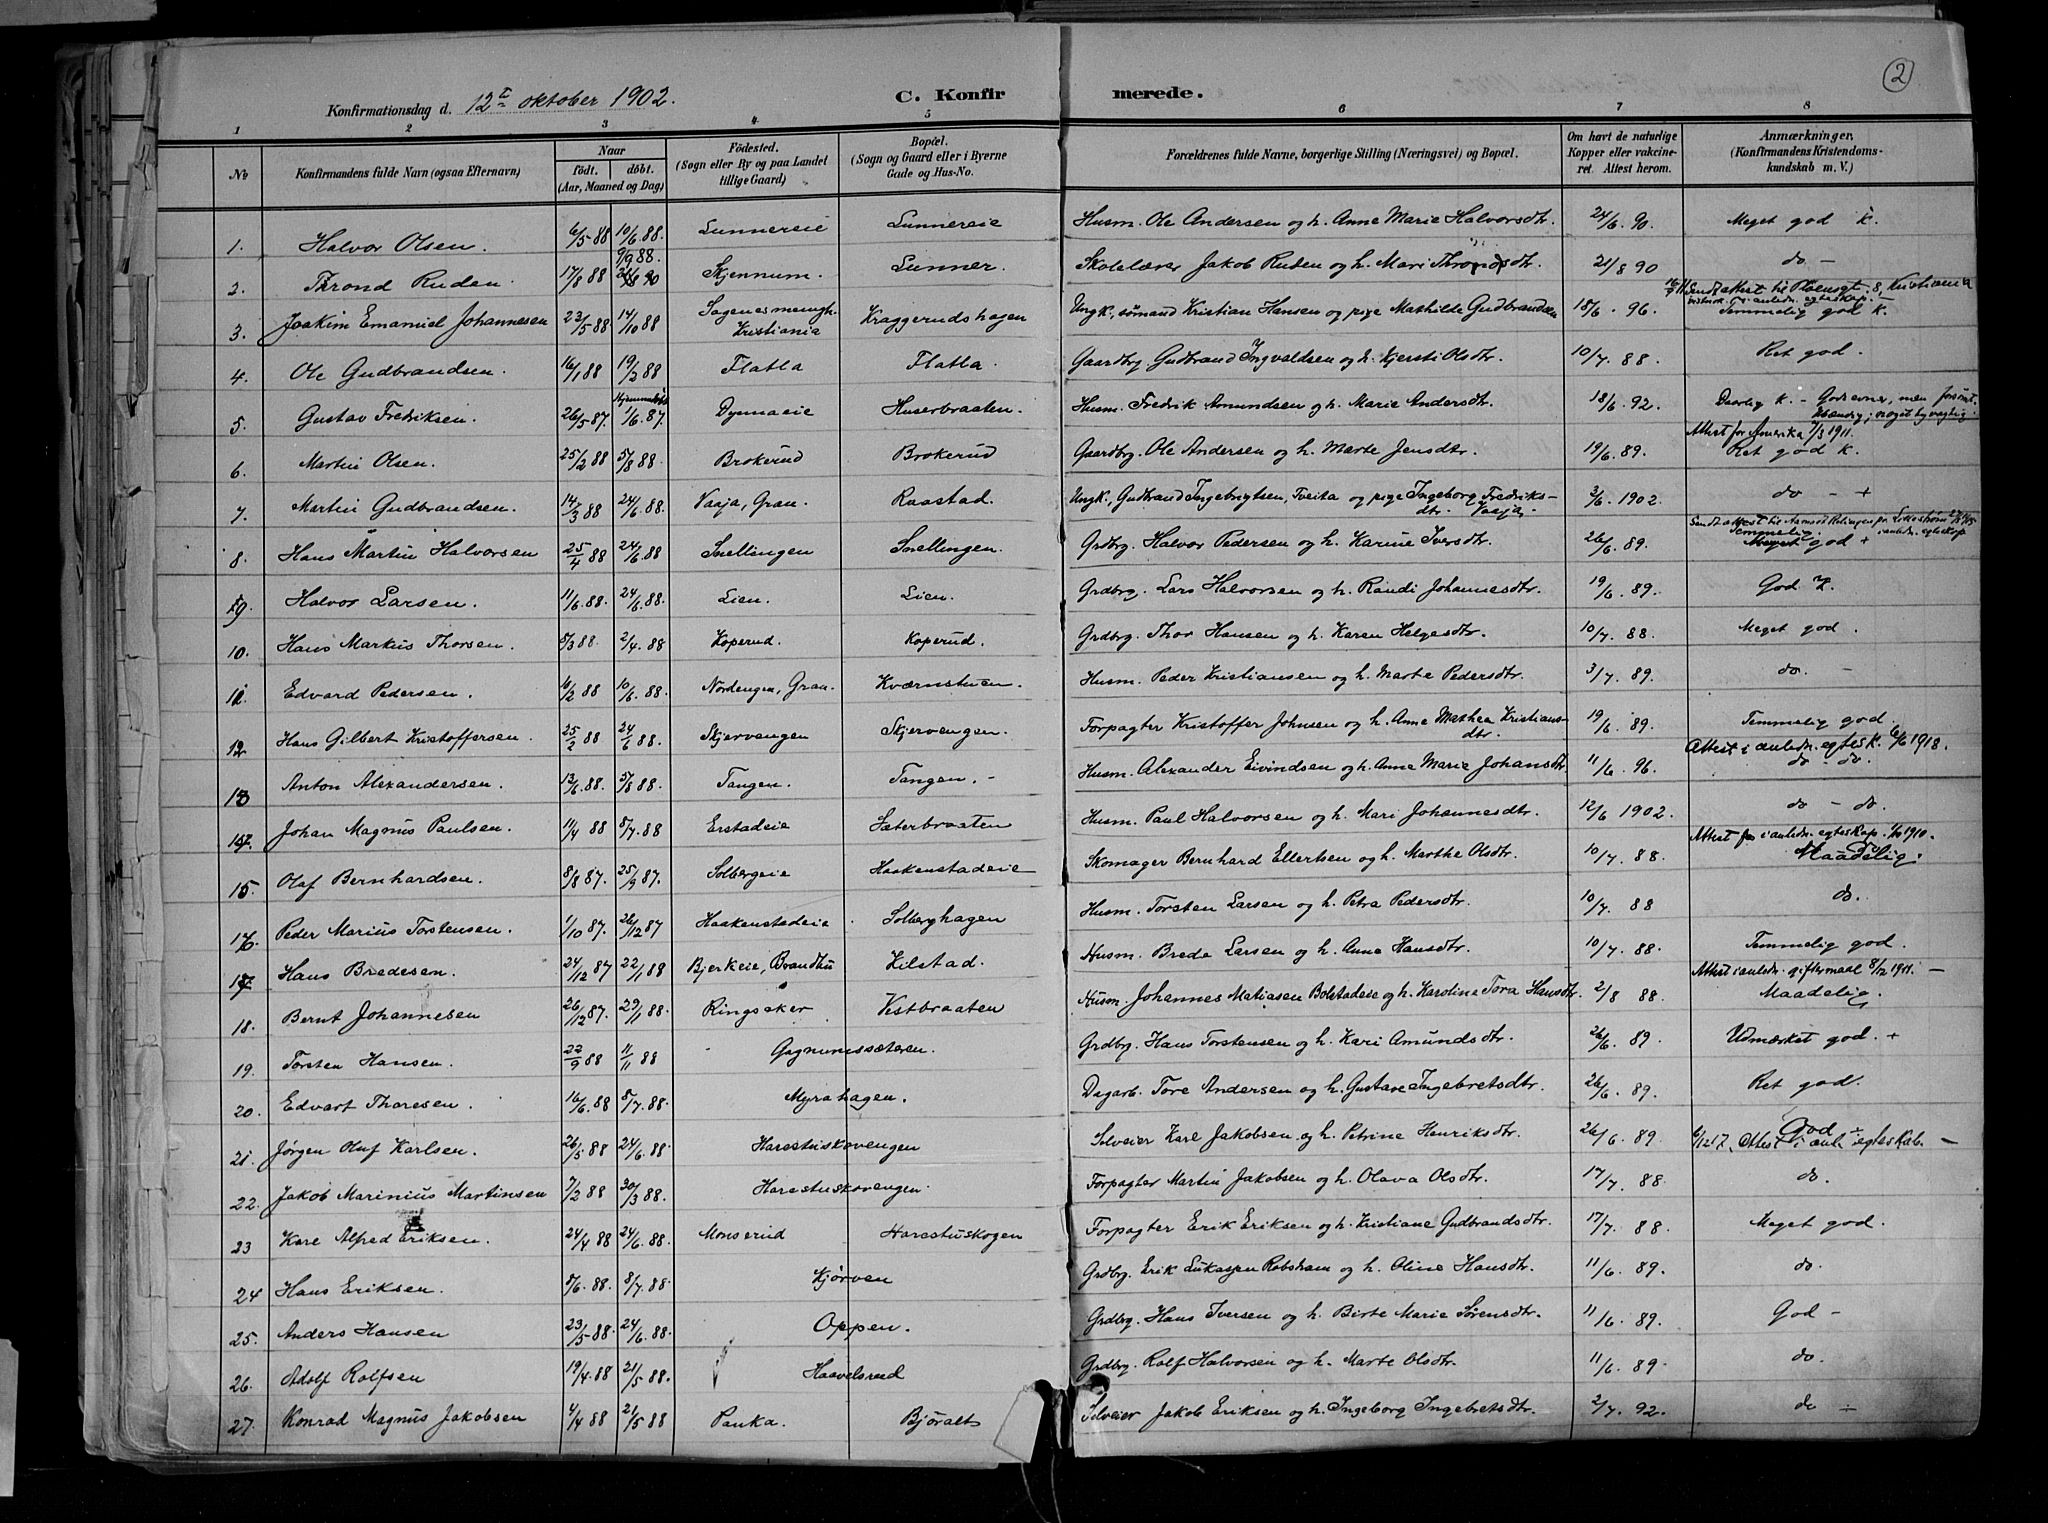 2
Konfirmationsdag d. 12te oktober 1902. C. Konfirmerede.
1 2 3 4 5 6 7 8
No Konfirmandens fulde Navn (ogsaa Efternavn) Naar født. døbt. (Aar, Maaned og Dag) Fødested. (Sogn eller By og paa Landet tillige Gaard) Bopæl. (Sogn og Gaard eller i Byerne Gade og Hus-No. Forældrenes fulde Navne, borgerlige Stilling (Næringsvei) og Bopæl. Om havt de naturlige Kopper eller vakcineret. Attest herom. Anmærkninger. (Konfirmandens Kristendomskundskab m. V.)
1. Halvor Olsen. 6/5 88 10/6 88. Lunnereie Lunnereie Husm. Ole Andersen og h. Anne Marie Halvorsdtr. 24/6. 90. Meget god K.
2. Thrond Ruden. 17/8 88 9/9 88. Skjennum. Lunner. Skolelærer Jakob Ruden og h. Mari Throndsdtr. 21/8 90 do –
3. Joakim Emanuel Johannesen 23/5 88 14/10 88 Sagenes menigh. Kristiania Kraggerudshagen Ungk., sømand Kristian Hansen og pige Mathilde Gudbrandsen 18/6. 96. Sendt attest til Kristiania i anledn. egteskap. – Temmelig god K.
4. Ole Gudbrandsen. 16/1 88 19/2 88 Flatla Flatla. Gaardbrg. Gudbrand Ingvaldsen og h. Kjersti Olsdtr. 10/7. 88. Ret god.
5. Gustav Fredriksen. 26/5 87. Hjemmedøbt 1/6. 87. Dynnaeie Huserbraaten. Husm. Fredrik Amundsen og h. Marie Andersdtr. 18/6. 92. Daarlig K. – Gode evner, men forsømt.
6. Martin Olsen. 25/2 88 5/8 88. Brokerud Brokerud Gaardbrg. Ole Andersen og h. Marte Jensdtr. 19/6. 89. Attest for Amerika 7/3 1911. Ret god K.
7. Martin Gudbrandsen. 14/3 88 24/6. 88. Vaaja, Gran. Raastad. Ungk. Gudbrand Ingebrigtsen, Tveita og pige Ingeborg Fredriksdtr. Vaaja. 3/6. 1902. do – +
8. Hans Martin Halvorsen 25/4 88 24/6. 88 Snellingen Snellingen. Grdbrg. Halvor Pedersen og h. Karine Iversdtr. 26/6. 89. Sendt attest til i anledn. egteskap Temmelig god +
9. Halvor Larsen. 11/6. 88. 24/6. 88. Lien. Lien. Grdbrg. Lars Halvorsen og h. Randi Johannesdtr. 19/6. 89. God
10. Hans Markus Thorsen. 5/3 88. 2/4. 88 Koperud. Koperud. Grdbrg. Thor Hansen og h. Karen Helgesdtr. 10/7. 88. Meget god.
11. Edvard Pedersen. 4/2 88 10/6. 88. Nordengen, Gran. Kværnstuen. Husm. Peder Kristiansen og h. Marte Pedersdtr. 3/7. 89. do. –
12. Hans Gilbert Kristoffersen. 25/2 88 24/6 88. Skjervengen Skjervengen. Forpagter Kristoffer Johnsen og h. Anne Mathea Kristiansdtr. 19/6. 89. Temmelig god.
13 Anton Alexandersen. 13/6. 88. 5/8 88. Tangen. Tangen. – Husm. Alexander Eivindsen og h. Anne Marie Johansdtr. 11/6. 96. Attest i anledn. egtesk. 6/6 1918. do – do.
14. Johan Magnus Paulsen. 11/4 88 8/7. 88 Erstadeie Sæterbraaten Husm. Paul Halvorsen og h. Mari Johannesdtr. 12/6 1902. do – do.
15. Olaf Bernhardsen. 8/8 87. 25/9 87. Solbergeie Haakenstadeie Skomager Bernhard Ellertsen og h. Marthe Olsdtr. 10/7. 88. Attest i anledn. egteskap. 1910. Maadelig.
16. Peder Marius Torstensen. 1/10 87. 26/12 87 Haakenstadeie. Solberghagen Husm. Torsten Larsen og h. Petra Pedersdtr. 10/7. 88 do.
17. Hans Bredesen. 24/12 87 22/1 88 Bjerkeie, Brandbu Kilstad. Husm. Brede Larsen og h. Anne Hansdtr. 10/7. 88. Temmelig god.
18. Bernt Johannesen 26/12 87. 29/11 88. Ringsaker Vestbraaten Husm. Johannes Matiasen Bolstadeie og h. Karoline Tora Hansdtr. 2/8 88. Attest i anledn. giftermaal 8/12 1911. – Maadelig.
19. Torsten Hansen. 22/9 88 11/11 88 Gagnumssæteren. Grdbrg. Hans Torstensen og h. Kari Amundsdtr. 26/6. 89. Udmærket god. +
20. Edvart Thoresen. 16/6. 88 8/7. 88. Myrahagen. Dagarb. Tore Andersen og h. Gustave Ingebretsdtr. 26/6. 89. Ret god.
21. Jørgen Oluf Karlsen. 26/5 88 24/6. 88. Harestuskovengen Selveier Karl Jakobsen og h. Petrine Henriksdtr. 26/6. 89. God – Attest i anl. egteskab. –
22. Jakob Marinius Martinsen 7/2 88 30/3 88. Harestuskovengen. Forpagter Martin Jakobsen og h. Olava Olsdtr. 17/7. 88. do.
23 Karl Alfred Eriksen. 24/4 88 24/6. 88. Monserud Harestuskogen Forpagter Erik Eriksen og h. Kristiane Gudbrandsdtr. 17/7. 88 Meget god.
24 Hans Eriksen. 8/6. 88. 8/7. 88 Kjørven Grdbrg. Erik Lukasen Robsham og h. Oline Hansdtr. 11/6. 89. do.
25. Anders Hansen 23/5 88. 24/6. 88. Oppen. Grdbrg. Hans Iversen og h. Birte Marie Sørensdtr. 11/6. 89. God –
26. Adolf Rolfsen 19/4. 88 21/5 88. Haavelsrud Grdbrg. Rolf Halvorsen og h. Marte Olsdtr. 11/6. 89 do.
27. Konrad Magnus Jakobsen 4/4 88 21/5 88 Panka. Bjøralt Selveier Jakob Eriksen og h. Ingeborg Ingebretsdtr. 2/7. 92. do –